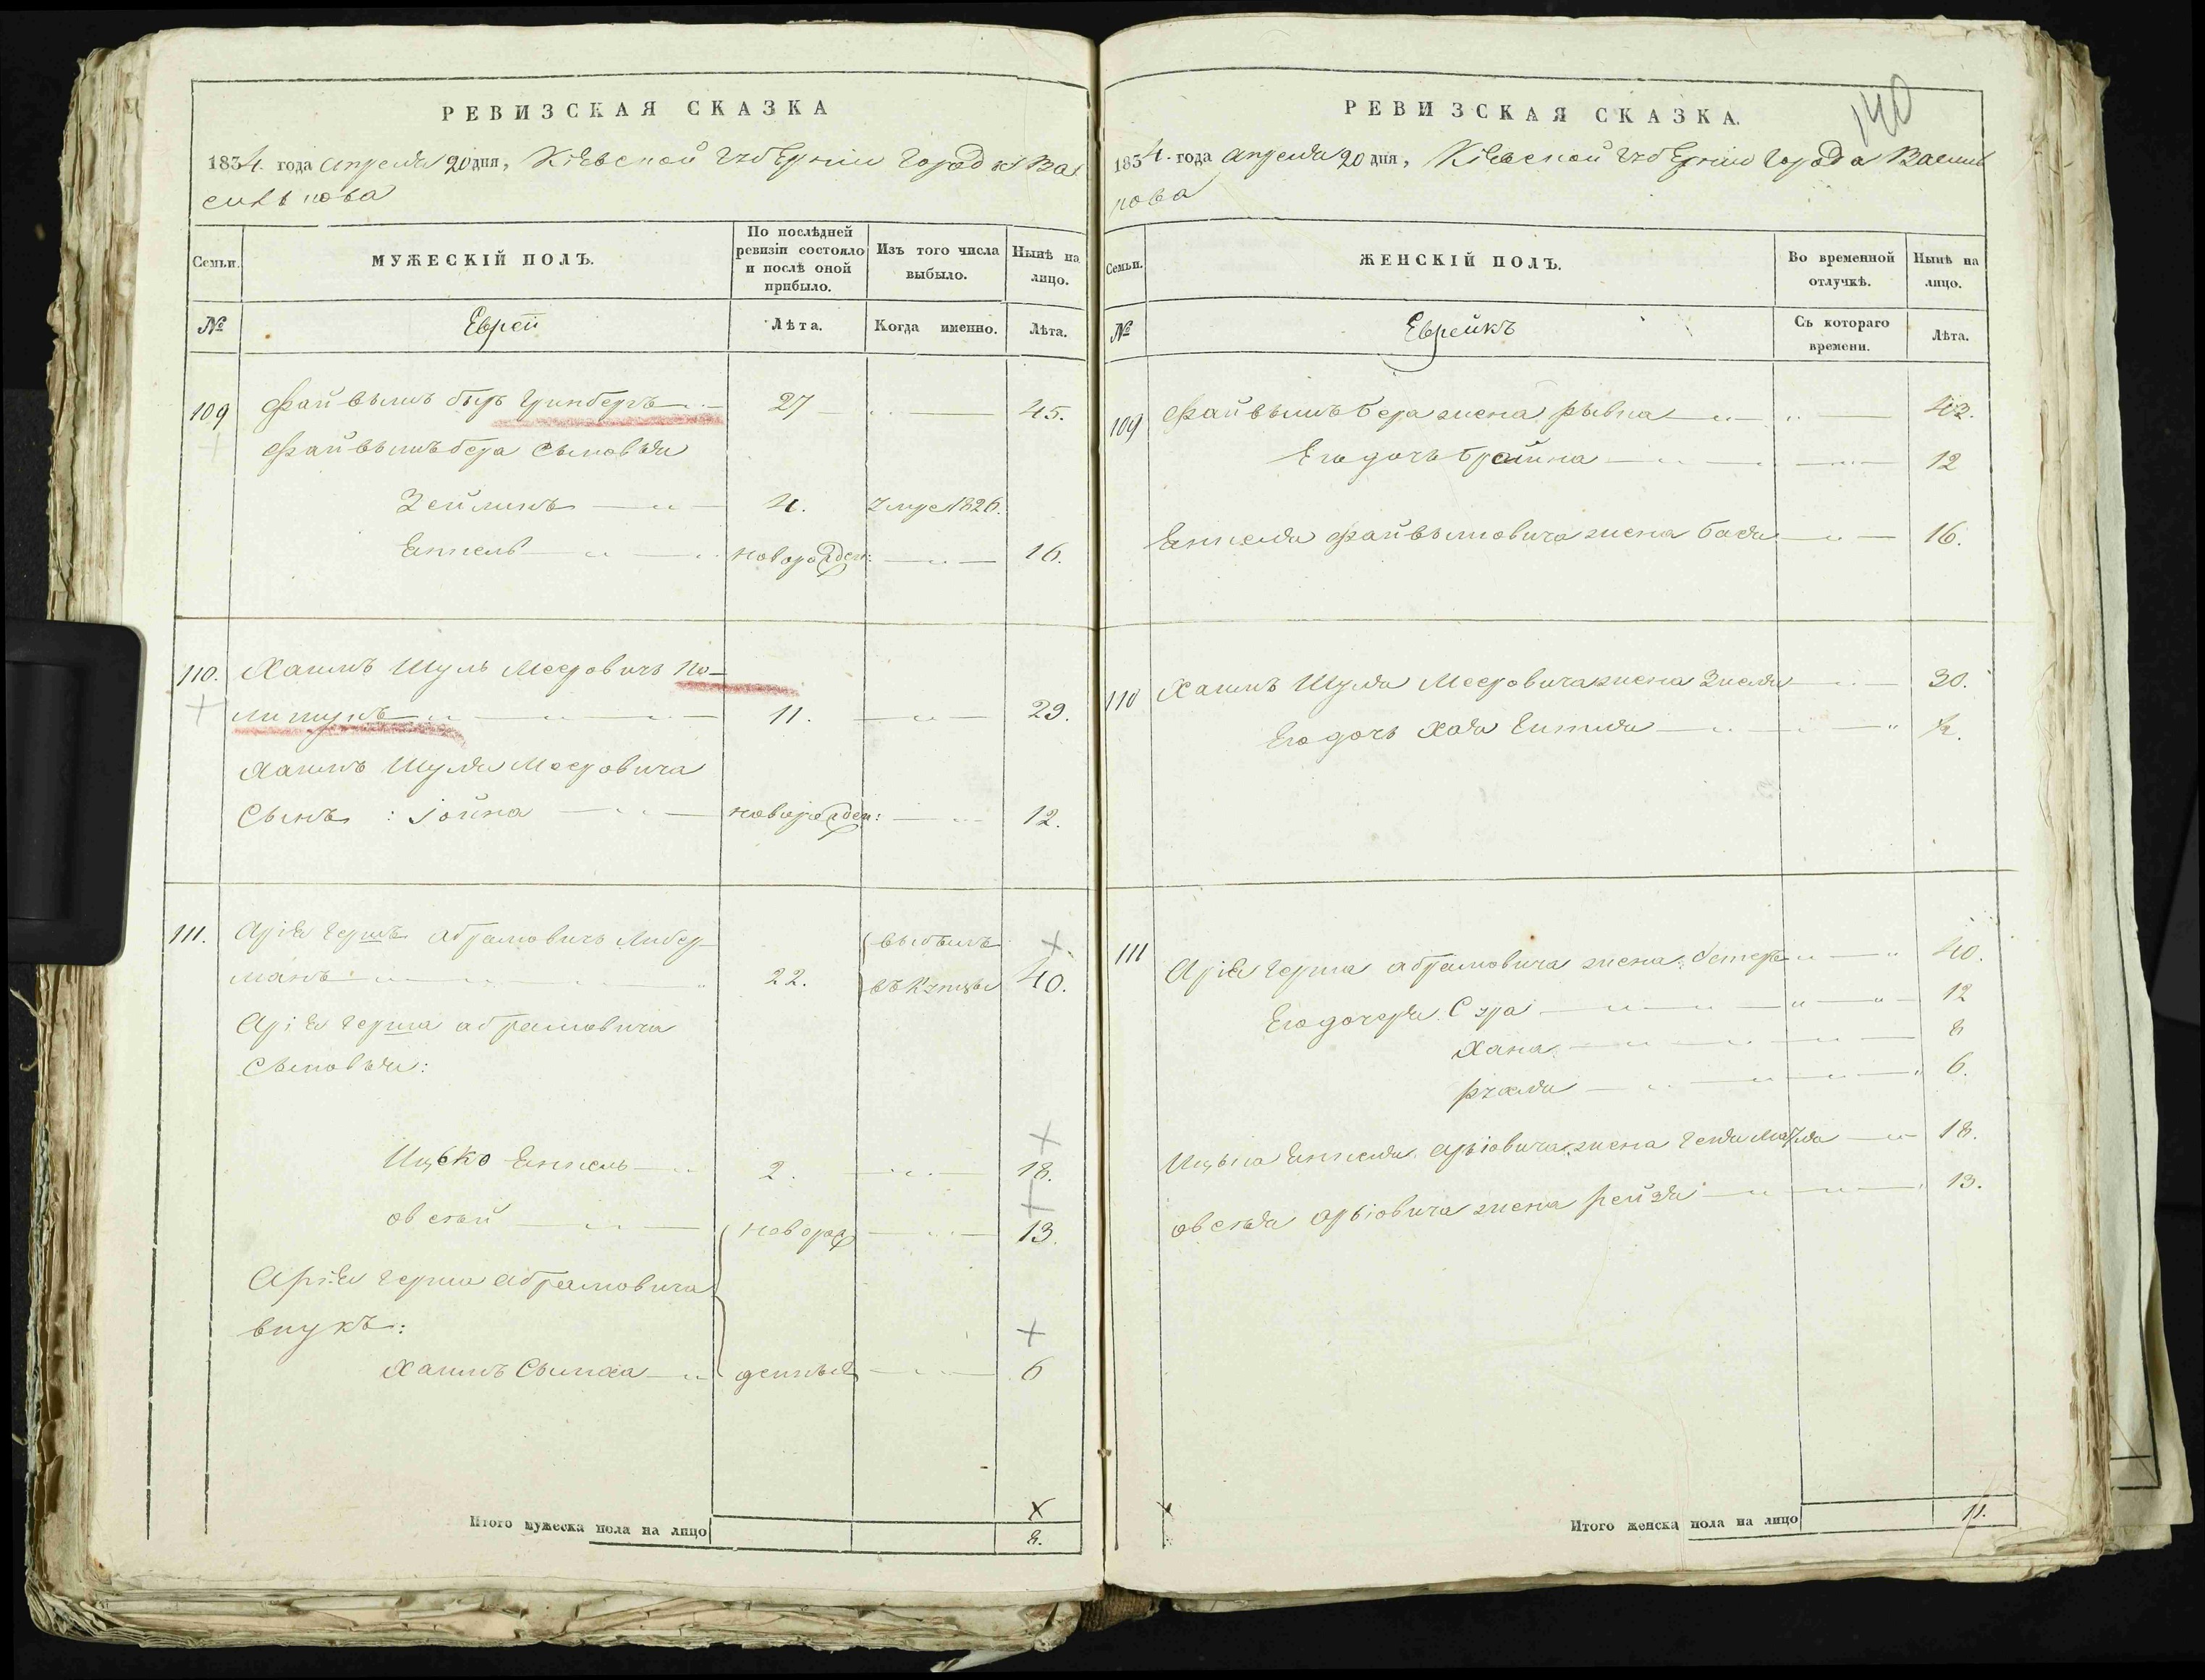 РЕВИЗСКАЯ СКАЗКА
1834. года Апреля 20 дня, Кіевской Губерніи Города Ва
силькова
Семьи.
МУЖЕСКІЙ ПОЛЪ.
По послѣдней ревизіи состояло и послѣ оной прибыло.
Изъ того числа выбыло.
Нынѣ на лицо.
№
Еврей
Лѣта.
Когда именно.
Лѣта.
109 Файвышъ Быръ Гринбергъ 27 45.
Файвышъ Бера Сыновья
Зейликъ 4. 1826.
Еннель новорожден: 16.
110. Хаимъ Шуль Мееровичъ По-
лищукъ 11. 29.
Хаимъ Шуля Мееровича
Сынъ: Іойна новорожден: 12.
111. Аріе Гершъ Абрамовичъ Либер
манъ 22. выбылъ въ Купцы 40.
Аріе Герша Абрамовича
Сыновья:
Ицько Еннель 2. 18.
Овсѣй новорож 13.
Аріе Герша Абрамовича
внукъ:
Хаимъ Сымха денные 6
Итого мужеска пола на лицо 8.
140
РЕВИЗСКАЯ СКАЗКА.
1834. года Апреля 20 дня, Кіевской Губерніи Города Василь
кова
Семьи.
ЖЕНСКІЙ ПОЛЪ.
Во временной отлучкѣ.
Нынѣ на лицо.
№
Еврейкъ
Съ котораго времени.
Лѣта.
109 Файвышъ Бера жена Рывка 43.
Его дочь Брайна 12
Еннеля Файвышовича жена Бася 16.
110 Хаимъ Шуля Мееровича жена Зисля 30.
Его дочь Хая Ентля ½.
111 Аріе Герша Абрамовича жена: Естеръ 40.
Его дочери Сура 12
Хана 8
Рухля 6.
Ицька Еннеля Арьовича жена Геня Малка 18.
Овсѣя Арьовича жена Рейзя 13.
Итого женска пола на лицо 11.